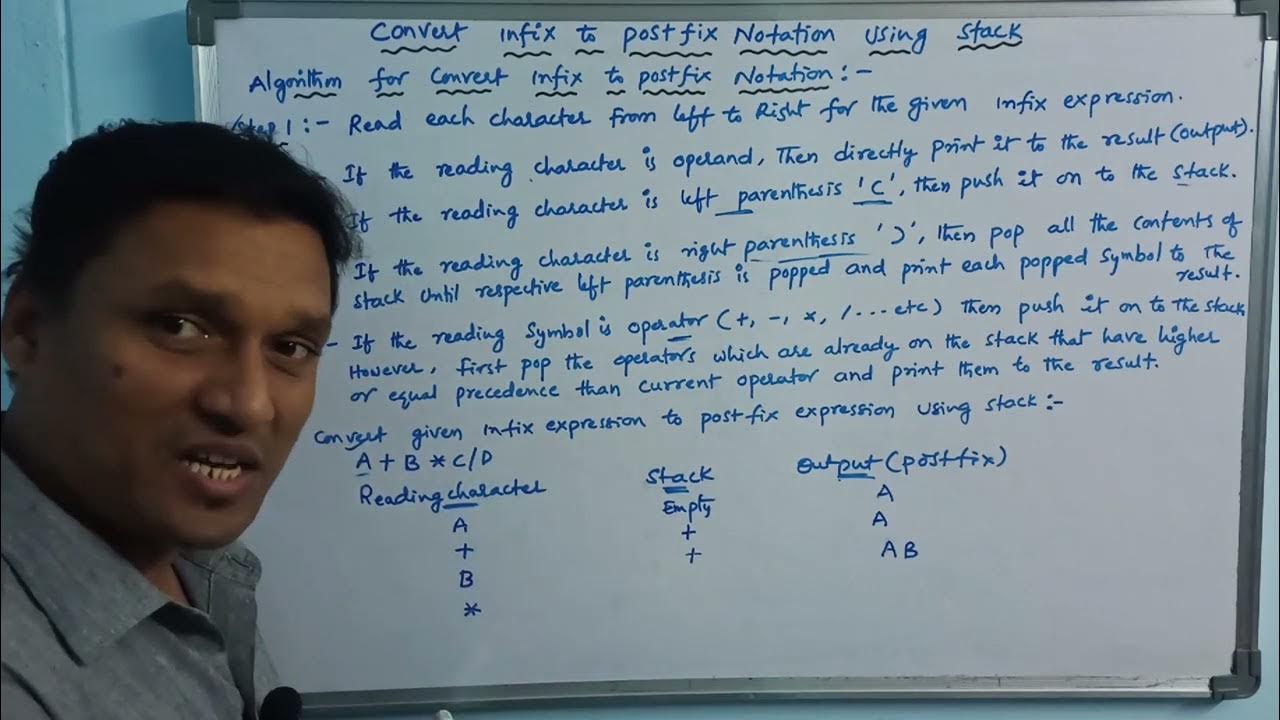 Convert Infix to postfix Notation Using Stack
Algorithm for Convert Infix to postfix Notation:-
Step 1:- Read each character from left to Right for the given infix expression.
If the reading character is operand, Then directly print it to the result (output).
If the reading character is left parenthesis '(', then push it on to the stack.
If the reading character is right parenthesis ')', then pop all the contents of
stack until respective left parenthesis is popped and print each popped symbol to the
result.
- If the reading Symbol is operator (+, -, *, /...etc) then push it on to the stack
However, first pop the operators which are already on the stack that have higher
or equal precedence than current operator and print them to the result.
Convert given infix expression to postfix expression using stack:-
A + B * C/D
Reading character Stack Output (postfix)
A Empty A
+ + A
B + AB
*